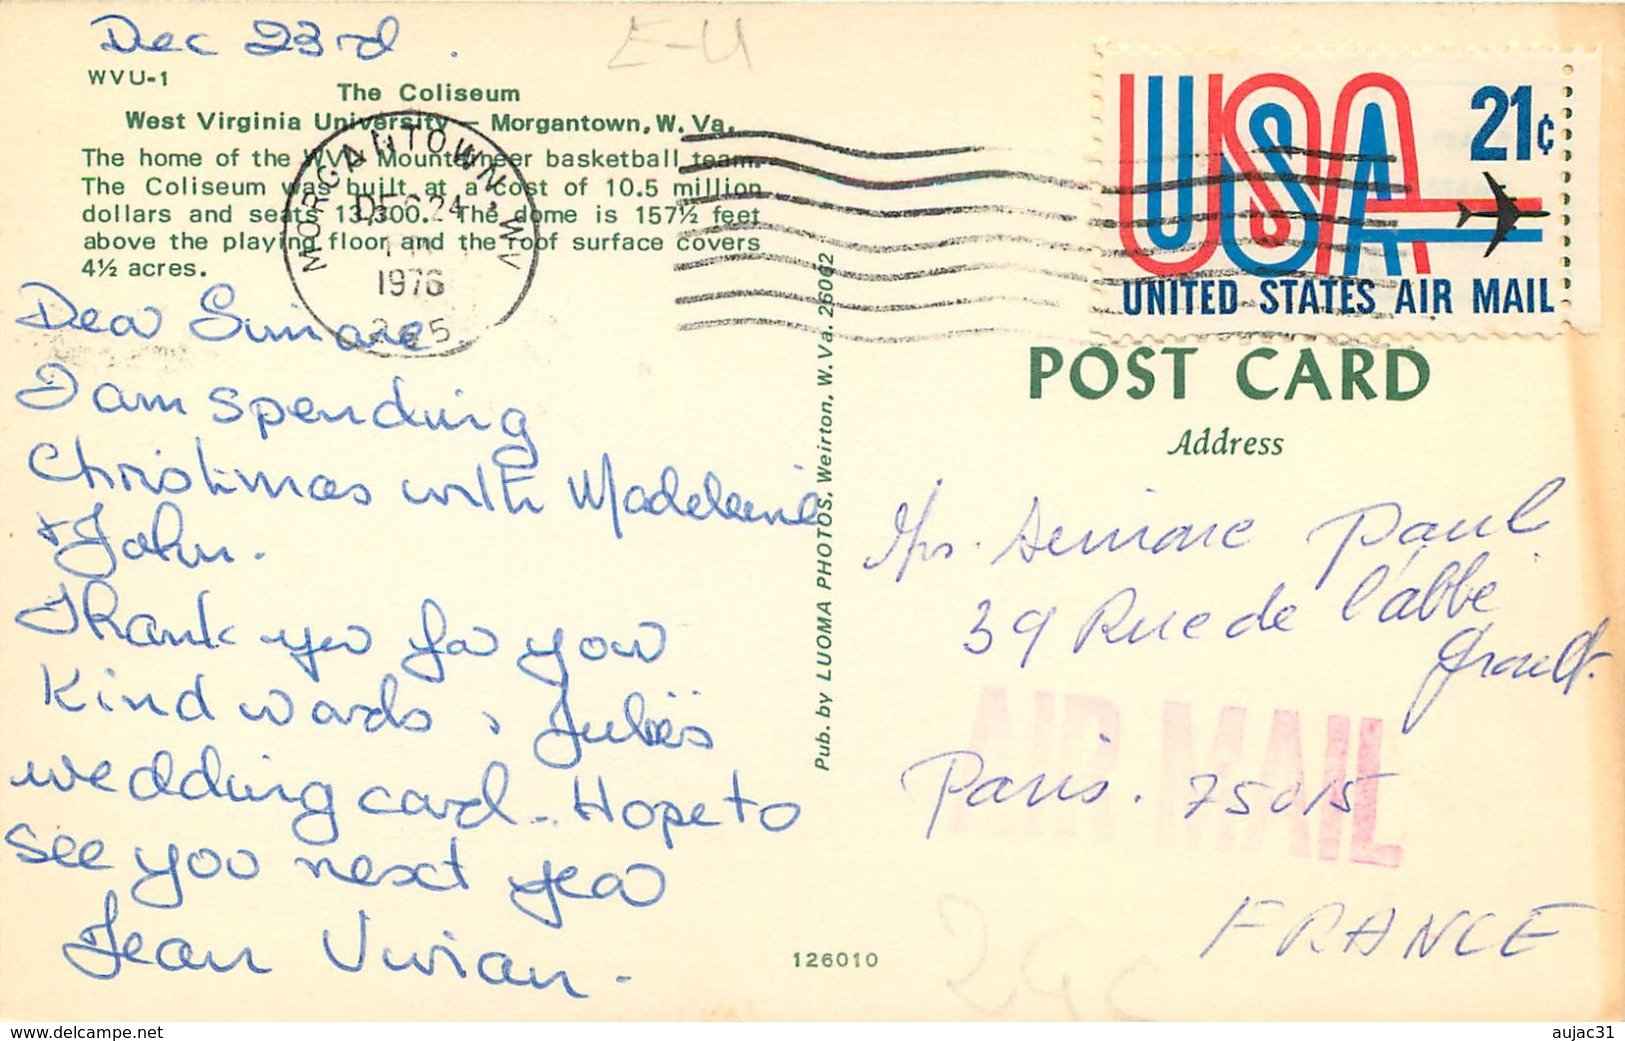 Dec 23rd.
E-U
WVU-1
The Coliseum
West Virginia University — Morgantown, W. Va.
The home of the WVU Mountaineer basketball team.
The Coliseum was built at a cost of 10.5 million
dollars and seats 13,300. The dome is 157½ feet
above the playing floor and the roof surface covers
4½ acres.
MORGANTOWN, WV
DEC 24
PM
1976
265
USA 21¢
UNITED STATES AIR MAIL
Dear Simone.
I am spending
Christmas with Madeleine
+ John.
Thank you for your
kind words, Julie's
wedding card.. Hope to
see you next year
Jean Vivian.
Pub. by LUOMA PHOTOS, Weirton, W. Va. 26062
POST CARD
Address
Mrs. Simone Paul
39 Rue de l'abbé
Groult.
AIR MAIL
Paris. 75015
FRANCE
126010
www.delcampe.net
aujac31